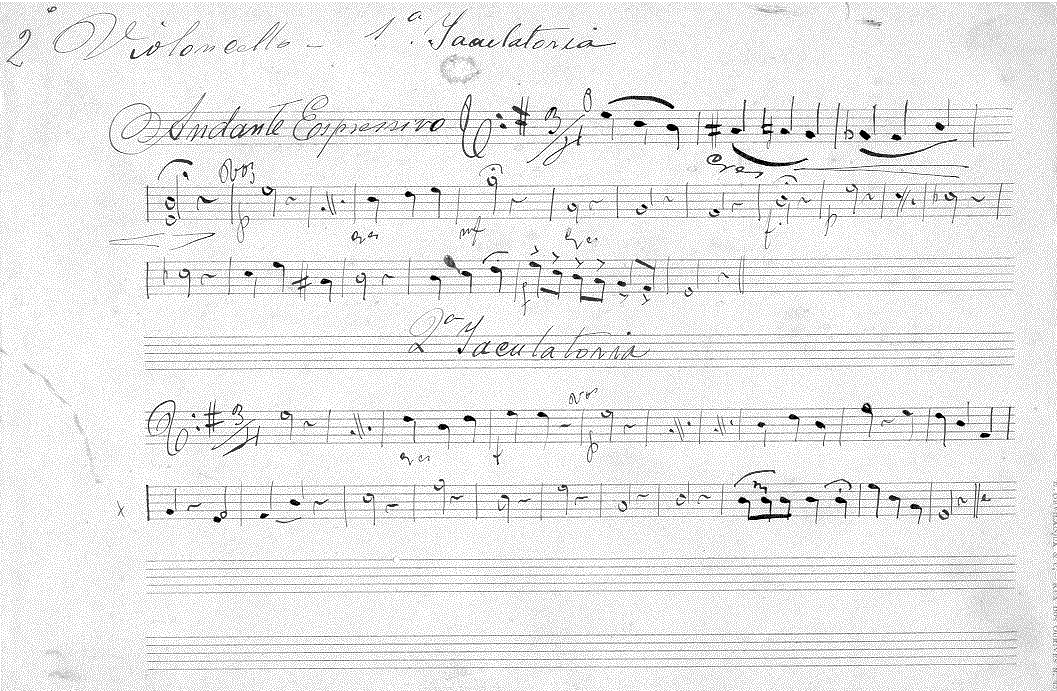 2º Violoncello - 1ª. Jaculatoria
Andante Expressivo 3/4
cres
Voz
p cres mf cres f p
f
2ª Jaculatoria
3/4 voz
cres f p